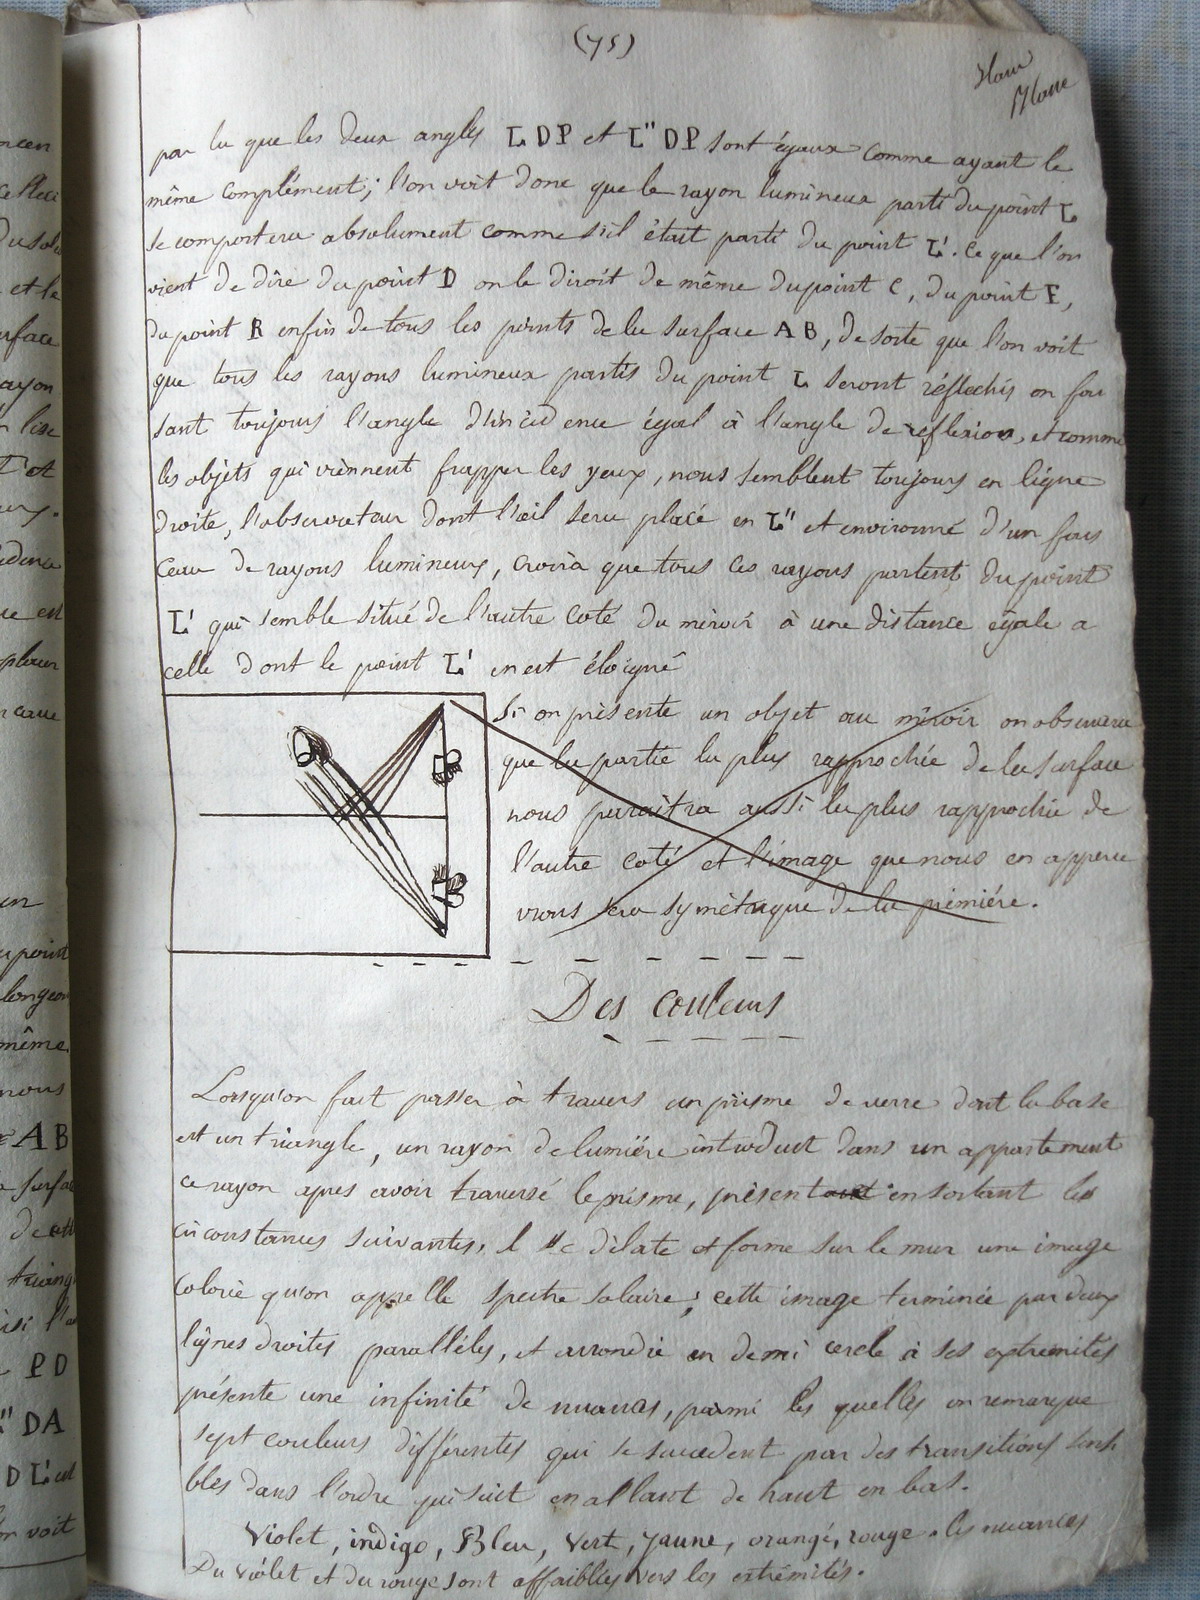 (75)
par la que les deux angles L D P et L" D P sont égaux comme ayant le
même complément; l'on voit donc que le rayon lumineux parti du point L
se comportera absolument comme s'il était parti du point L'. Ce que l'on
vient de dire du point D on le diroit de même du point C, du point E,
du point R enfin de tous les points de la surface A B, de sorte que l'on voit
que tous les rayons lumineux partis du point L seront réflechis en fai
sant toujours l'angle d'incidence égal à l'angle de réflexion, et comme
les objets qui viennent frapper les yeux, nous semblent toujours en ligne
droite, l'observateur dont l'œil sera placé en L" et environné d'un fais
ceau de rayons lumineux, croira que tous ces rayons partent du point
L' qui semble situé de l'autre coté du miroir à une distance égale a
celle dont le point L' en est éloigné
Si on présente un objet au miroir on observera
que la partie la plus rapprochée de la surface
nous paraitra aussi la plus rapprochée de
l'autre coté et l'image que nous en apperce
vrons sera symètrique de la première.
Des couleurs
Lorsqu'on fait passer à travers un prisme de verre dont la base
est un triangle, un rayon de lumière introduit dans un appartement
ce rayon apres avoir traversé le prisme, présent en sortant les
circonstances suivantes, Il se dilate et forme sur le mur une image
colorie qu'on appelle spectre solaire; cette image terminée par deux
lignes droites parallèles, et arrondie en demi cercle à ses extremités
présente une infinité de nuances, parmi les quelles on remarque
sept couleurs différentes qui se succedent par des transitions sensi
bles dans l'ordre qui suit en allant de haut en bas.
Violet, indigo, Bleu, Vert, jaune, orangé, rouge. les nuances
Du violet et du rouge sont affaiblies vers les extrémités.